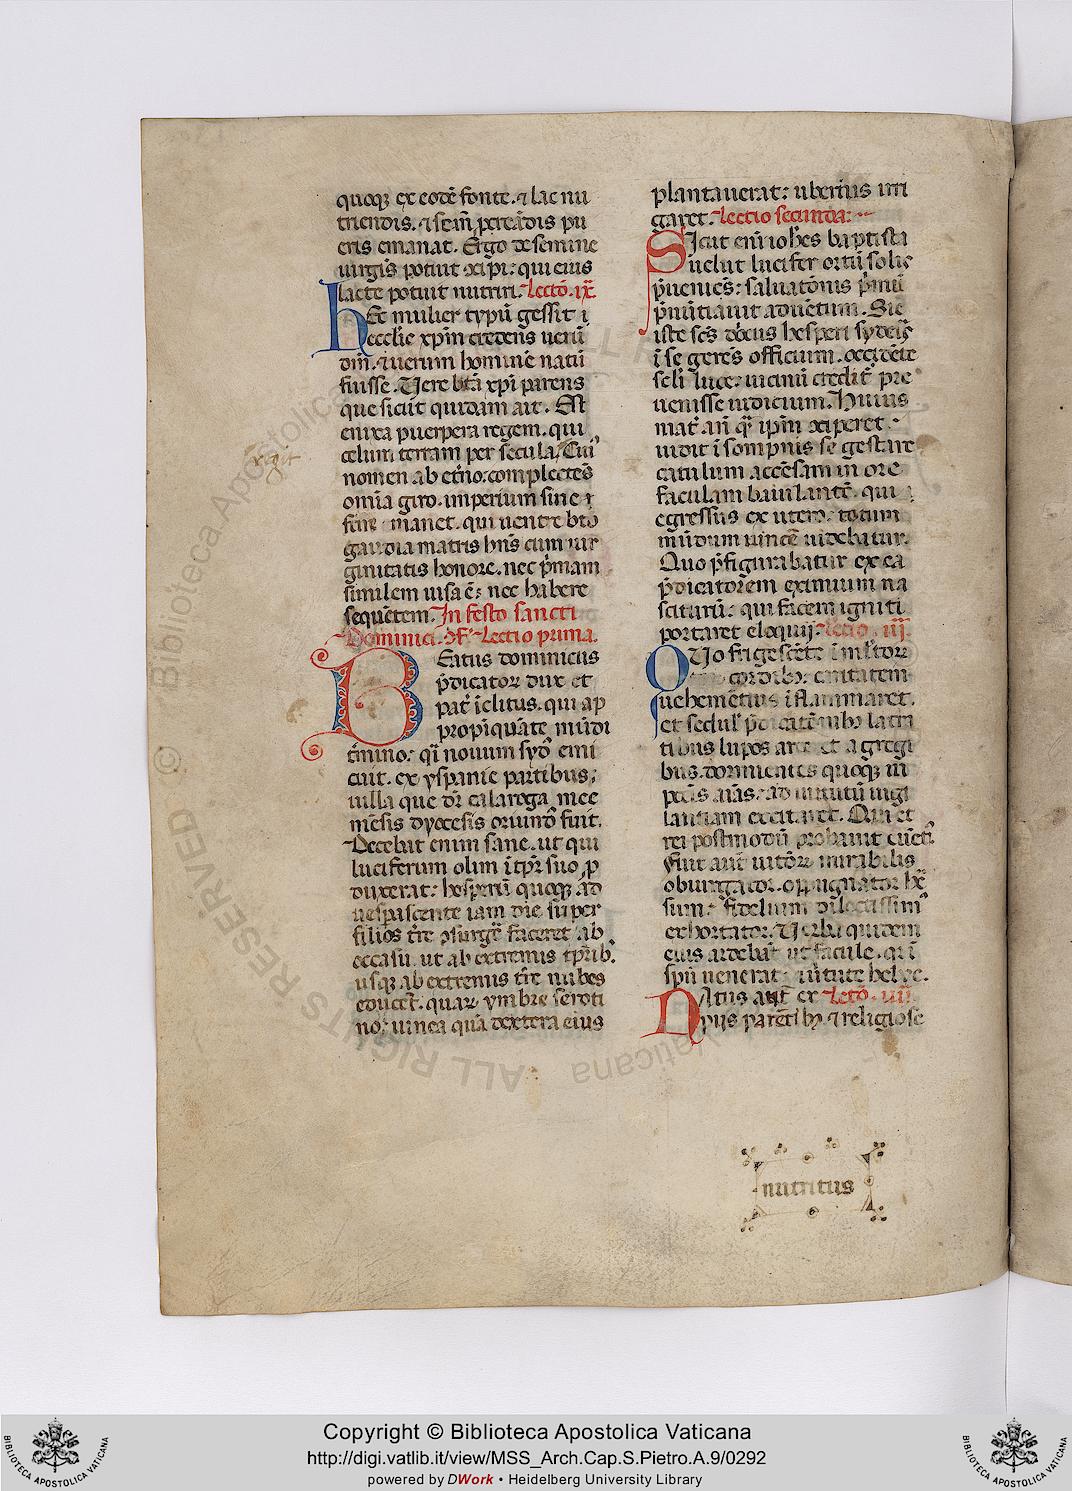 quoq; ex eodē fonte. ⁊ lac nu
triendis. ⁊ semē pereādis pu
eris emanat. Ergo de semine
uirgīs potuit xipi: qui eius
lacte potuit nutriri. Lectō. ix.
hEc mulier typū gessit i
ecclie xp̄m credens uerū
dm̄. ⁊ uerum hominē natū
fuisse. Uere btā xp̄i parens
que sicut quidam ait. Est
enixa puerpera regem. qui
celum terram per secula. Cui
nomen ab et̄no. complectēs
omīa giro. imperium sine
fine manet. que uentre bto
gaudia matris hn̄s cum uir
ginitatis honore. nec p̄mam
similem uisa ē: nec habere
sequētem. In festo sancti
Dominici. 9f̄. Lectio prima.
BEatus dominicus
p̄dicatoꝝ dux et
pat̄ īclitus. qui ap
propīquāte mūdi
t̄mino: q̄i nouum syd9 emi
cuit. ex yspanie partibus;
uilla que dr̄ calaroga
mēsis dyocesis oriund9 fuit.
Decebat enim sane. ut qui
luciferum olim ī tp̄r suo p̄
duxerat: hesperū quoq; ad
uespascente iam die super
filios t̄re 9surgē faceret ab
occasu. ut ab extremis
usq; ab extremis t̄re nubes
educēt. quaꝝ ymbre seroti
no: uinea quā dextera eius
plantauerat: uberius irri
garet. Lectio secunda:
Sicut enī ioh̄es baptista
uelut lucifer ortū solis
p̄ueniēs: saluatoris p̄mū
p̄nūtiauit aduētum. Sic
iste scs̄ docus hesperi syderis
ī se gerēs officium. occidēte
seli luce: uicinū credit̄ pre
uenisse iudicium. Huius
mat̄. an̄ q̄ ip̄m xiperet
uidit ī sompnis se gestare
catulum accēsam in ore
faculam baiulantē. qui
egressus ex utero. totum
mūdum uincē uidebatur.
Quo p̄figurabatur ex ea
p̄dicatorem eximium na
sciturū: qui facem igniti
portaret eloquij. Lectio. iij.
QUo frigescēte ī
cordib9: caritatem
uehemētius īflammaret.
et sedul9 p̄dicatōnib9 latra
tibus lupos arceret a gregi
bus. dormientes quoq; in
pccīs aīas: ad uirtutū uigi
lantiam excitaret. Quā et
rei postmodū probauit euēt9
Fuit aut̄ uitioꝝ mirabilis
obiurgator. oppugnator hē
sum. fidelium diligetissim9
exhortator. Uerba quidem
eius ardebāt ut facule. q̄r ī
spū uenerat uirtute helye.
NAtus aut̄ ex Lectō. iiij.
pijs parētib9 ⁊ religiose
nutritus
Copyright © Biblioteca Apostolica Vaticana
http://digi.vatlib.it/view/MSS_Arch.Cap.S.Pietro.A.9/0292
powered by DWork • Heidelberg University Library